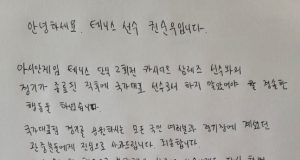 안녕하세요. 테니스 선수 권순우입니다.
아시안게임 테니스 단식 2회전 카시디트 삼레즈 선수와의
경기가 종료된 직후에 국가대표 선수로서 하지 말았어야 할 경솔한
행동을 하였습니다.
국가대표팀 경기를 응원하시는 모든 국민 여러분과 경기장에 계셨던
관중분들에게 진심으로 사과드립니다. 죄송합니다.